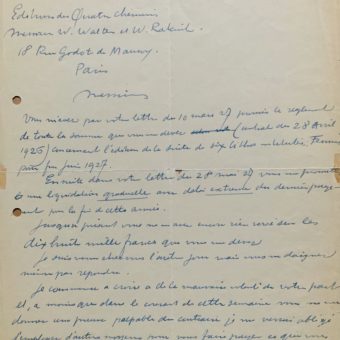 Editions des Quatre chemins
Messieurs W. Walter et W.
18 Rue Godot de Mauroy
Paris
Messieurs
Vous m'aviez par votre lettre du 10 mars 27 promis le reglement
de toute la somme que vous me devez (contrat du 28 Avril
1926) concernant l'edition de la suite de six lithos intitulée,
fin juin 1927.
Ensuite dans votre lettre du 28 mai 27 vous me promettez
une liquidation graduelle avec délai extreme du dernier paye-
ment par la fin de cette année.
Jusqu'à présent vous ne m'avez encore rien versé sur les
dix huit mille francs que vous me devez
Je suis venu chez vous l'autre jour mais vous ne daignez
meme pas repondre.
Je commence a croire a de la mauvaise volonté de votre part
et, a moins que dans le courant de cette semaine vous ne me
donniez une preuve palpable du contraire je me verrai obligé
d'autres moyens pour vous faire payer ce que vous